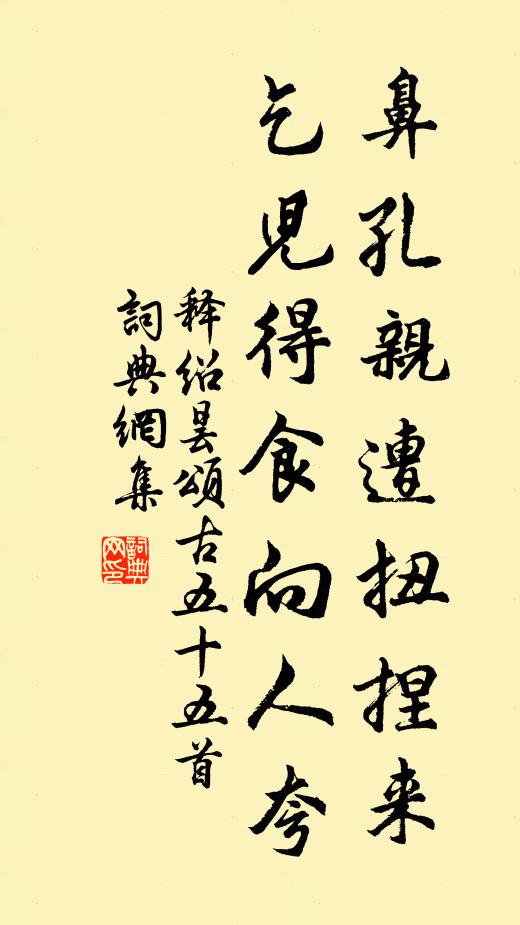 鼻孔親遭扭捏来
乞児得食向人夸
释绍昙頌古五十五首
詞典網集
詞典网印